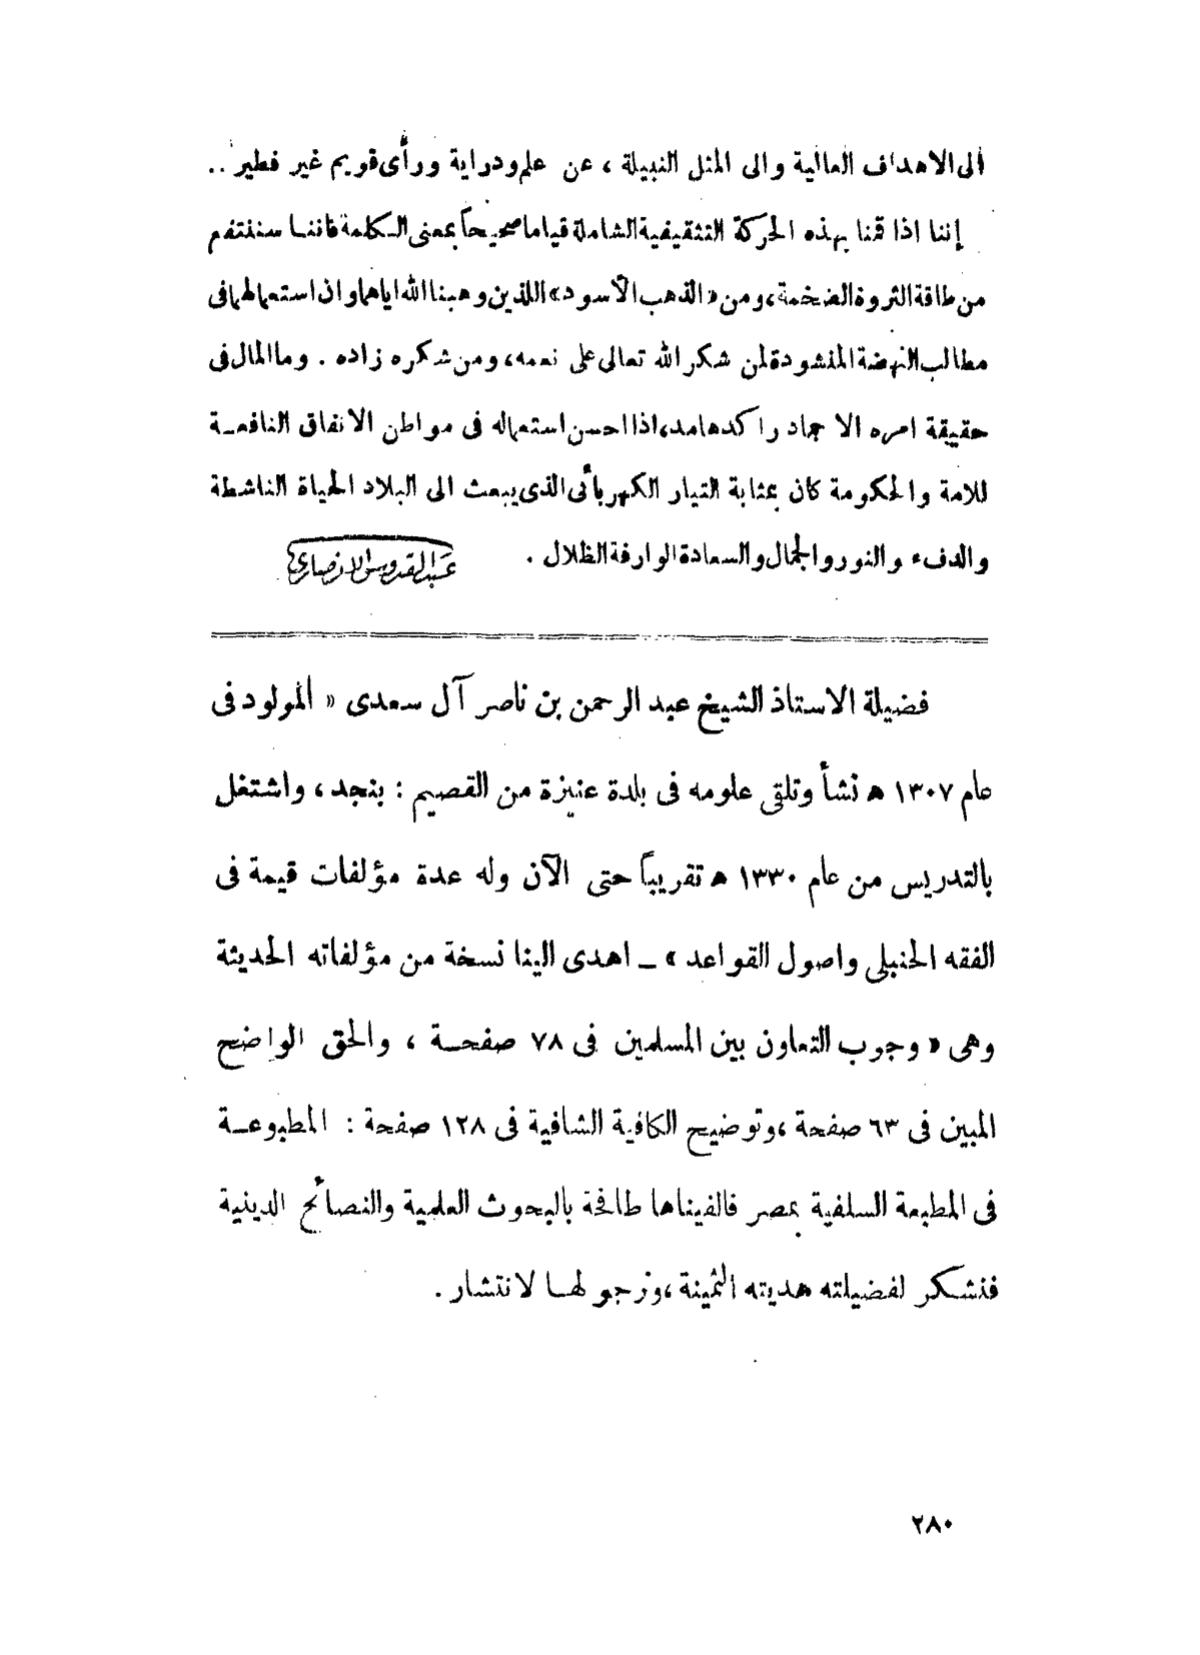 الى الاهداف العالية والى المثل النبيلة ، عن علم ودراية ورأى قويم غير فطير ..
إننا اذا قمنا بهذه الحركة التثقيفية الشاملة قياما صحيحاً بمعنى الكلمة فاننا سننتفع
من طاقة الثروة الضخمة، ومن «الذهب الأسود» اللذين وهبنا الله اياهما وان استعمالهما فى
مطالب النهضة المنشودة لمن شكر الله تعالى على نعمه، ومن شكره زاده . وما المال فى
حقيقة امره الا جماد راكد هامد، اذا احسن استعماله فى مواطن الانفاق النافعـة
للامة والحكومة كان بمثابة التيار الكهربأئى الذى يبعث الى البلاد الحياة الناشطة
والدفء والنور والجمال والسعادة الوارفة الظلال .
عبد القدوس الانصاري
فضيلة الاستاذ الشيخ عبد الرحمن بن ناصر آل سعدى « المولود فى
عام ١٣٠٧ ه نشأ وتلقى علومه فى بلدة عنيزة من القصيم : بنجد ، واشتغل
بالتدريس من عام ١٣٣٠ ه تقريباً حتى الآن وله عدة مؤلفات قيمة فى
الفقه الحنبلى واصول القواعد » ـ اهدى الينا نسخة من مؤلفاته الحديثة
وهى « وجوب التعاون بين المسلمين فى ٧٨ صفحـة ، والحق الواضح
المبين فى ٦٣ صفحة ،وتوضيح الكافية الشافية فى ١٢٨ صفحة : المطبوعـة
فى المطبعة السلفية بمصر فالفيناها طافحة بالبحوث العلمية والنصائح الدينية
فنشكر لفضيلته هديته الثمينة ،ونرجو لهـا لانتشار .
٢٨٠